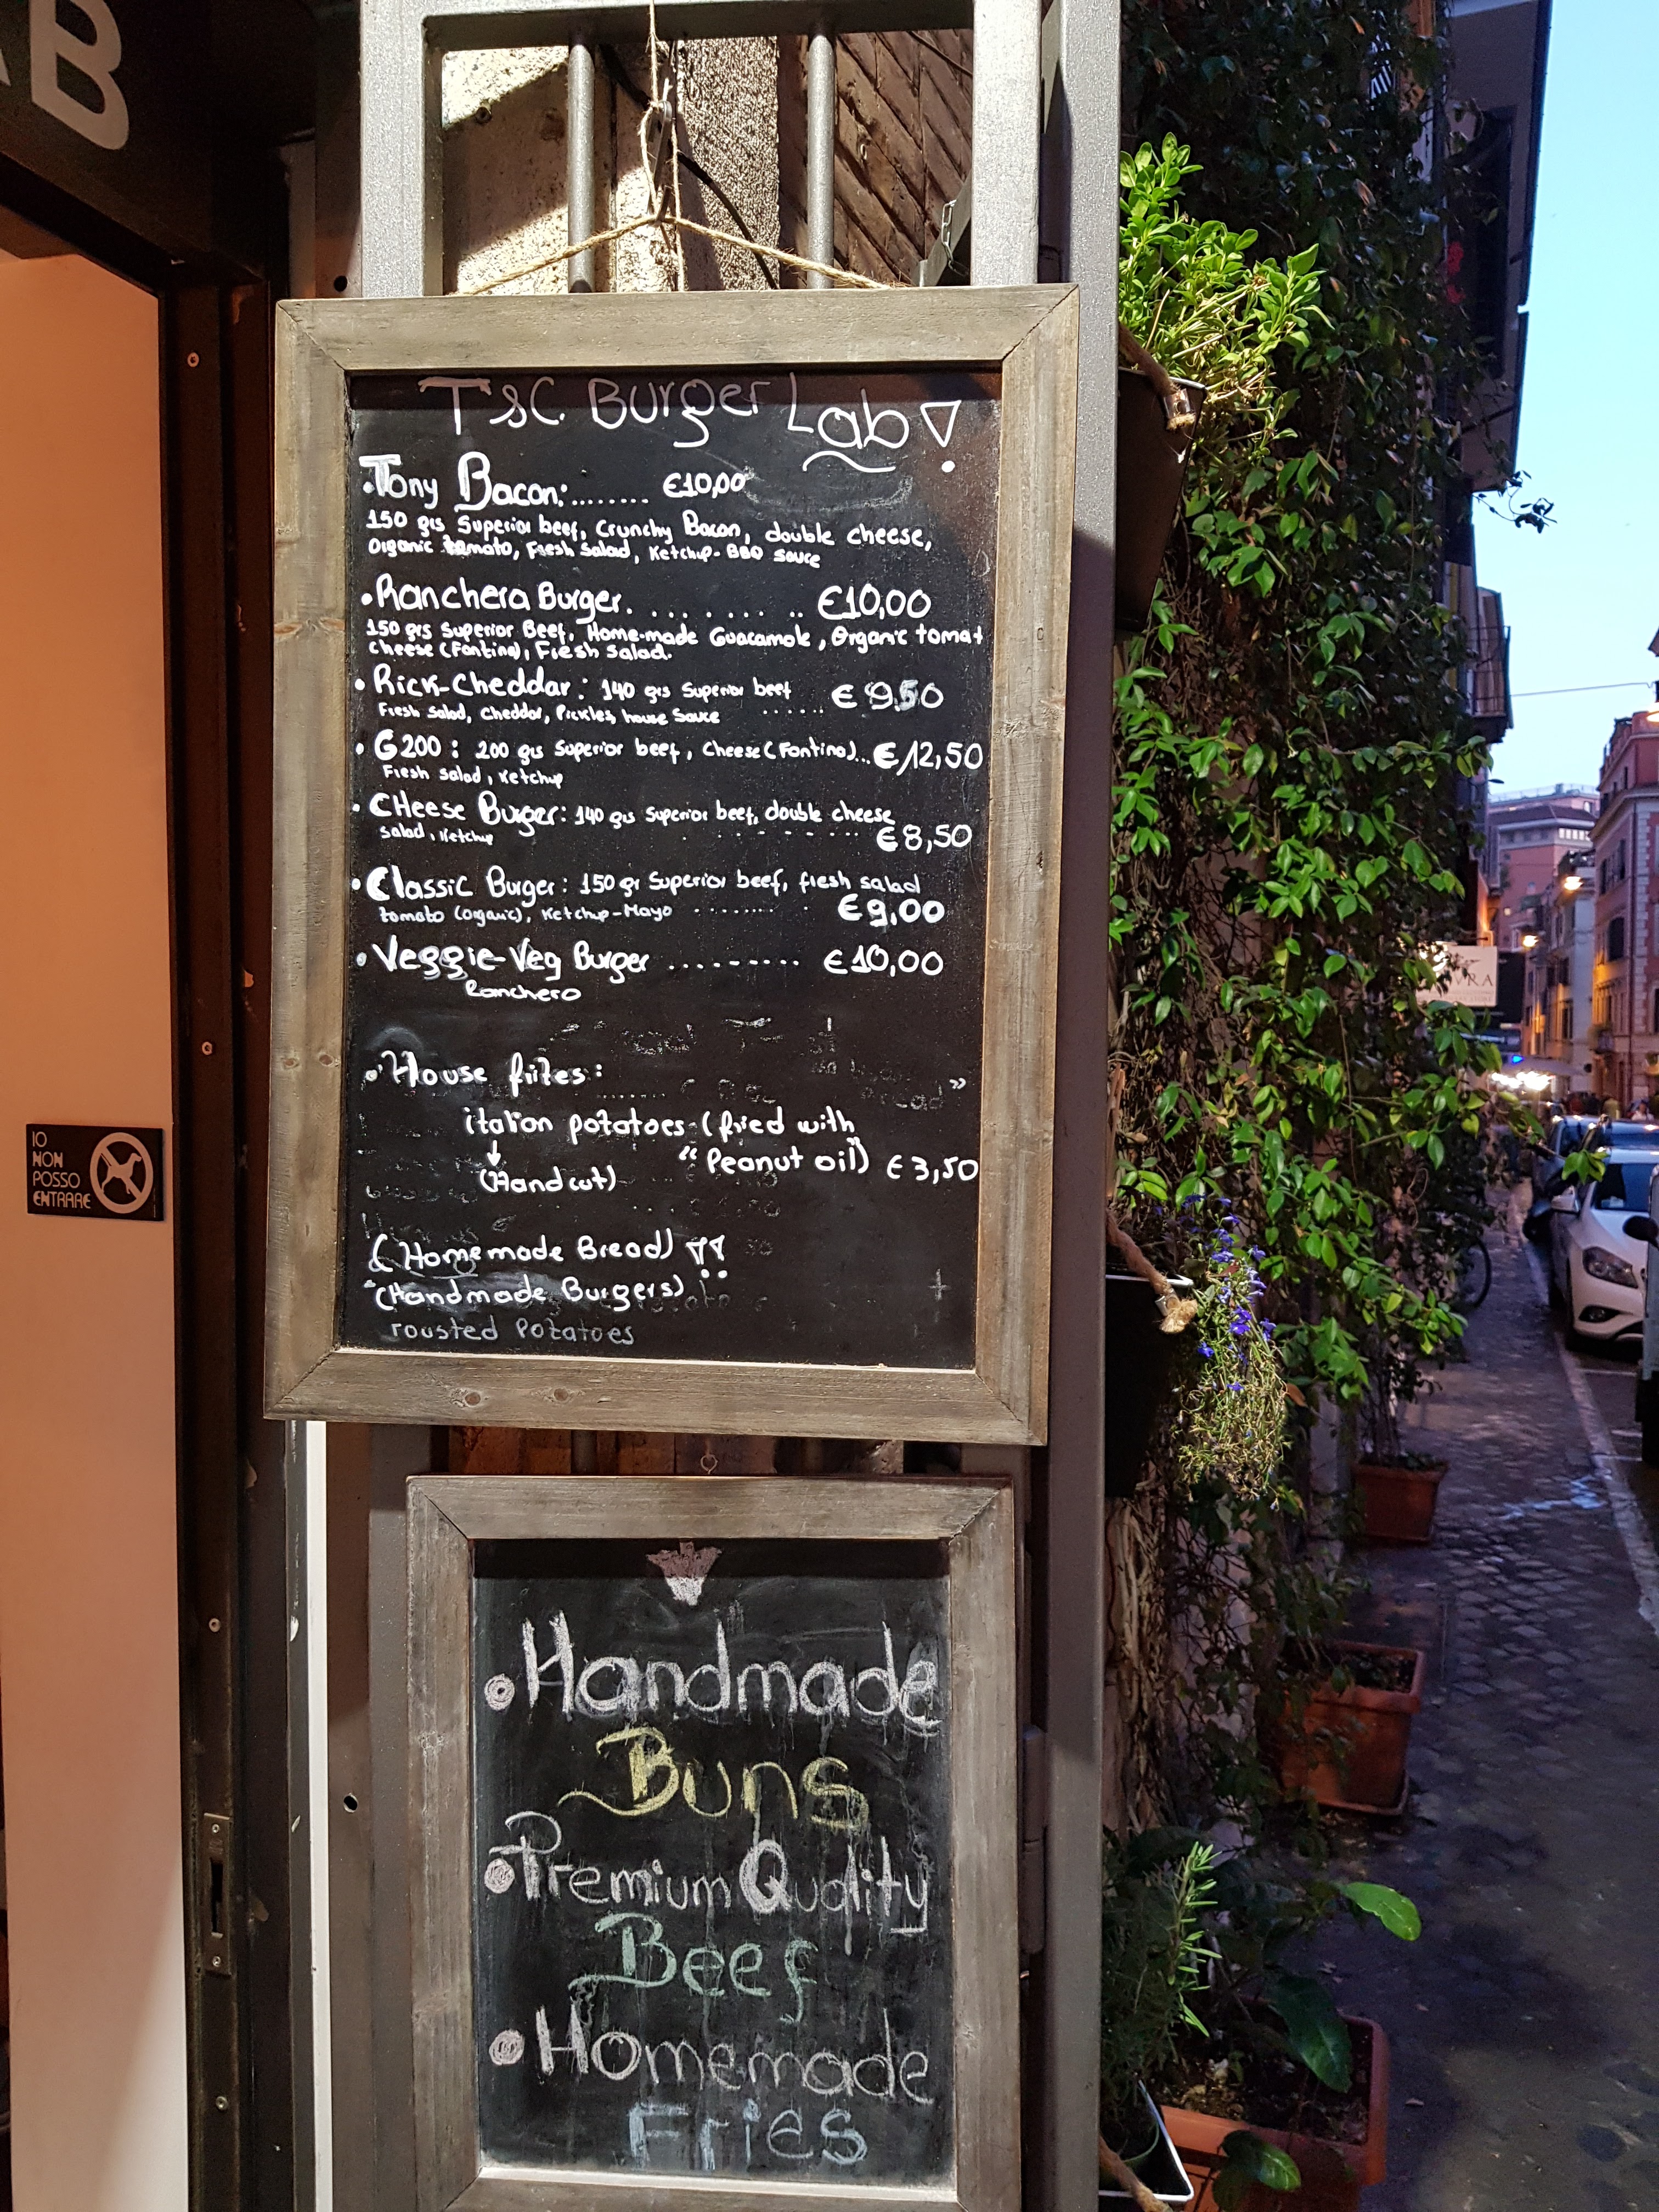 AB
TSC. Burger Lab!
•Tony Bacon:........ €10,00
150 grs Superior beef, Crunchy Bacon, double cheese,
Organic tomato, Fresh Salad, Ketchup-BBQ sauce
•Ranchera Burger. . . . . . . . . .. €10,00
150 grs Superior Beef, Home-made Guacamole, Organic tomat
cheese (Fontina), Fresh Salad.
• Rick-Cheddar: 140 grs Superior beef ...... € 9.50
Fresh Salad, Cheddar, Pickles, house Sauce
• G200: 200 grs Superior beef, Cheese (Fontina)...€12,50
Fresh salad, Ketchup
• CHeese Burger: 140 grs Superior beef, double cheese
Salad, Ketchup . . . . . . . . . . €8,50
• Classic Burger: 150 gr Superior beef, fresh salad
tomato (organic), Ketchup-Mayo ......... €9,00
• Veggie-Veg Burger .......... €10,00
Ranchero
•House frites:
italian potatoes-(fried with
"Peanut oil) €3,50
(Handcut)
(Homemade Bread) !!
"(Handmade Burgers)
rousted Potatoes
IO
NON
POSSO
ENTRARE
•Handmade
Buns
•Premium Quality
Beef
•Homemade
Fries